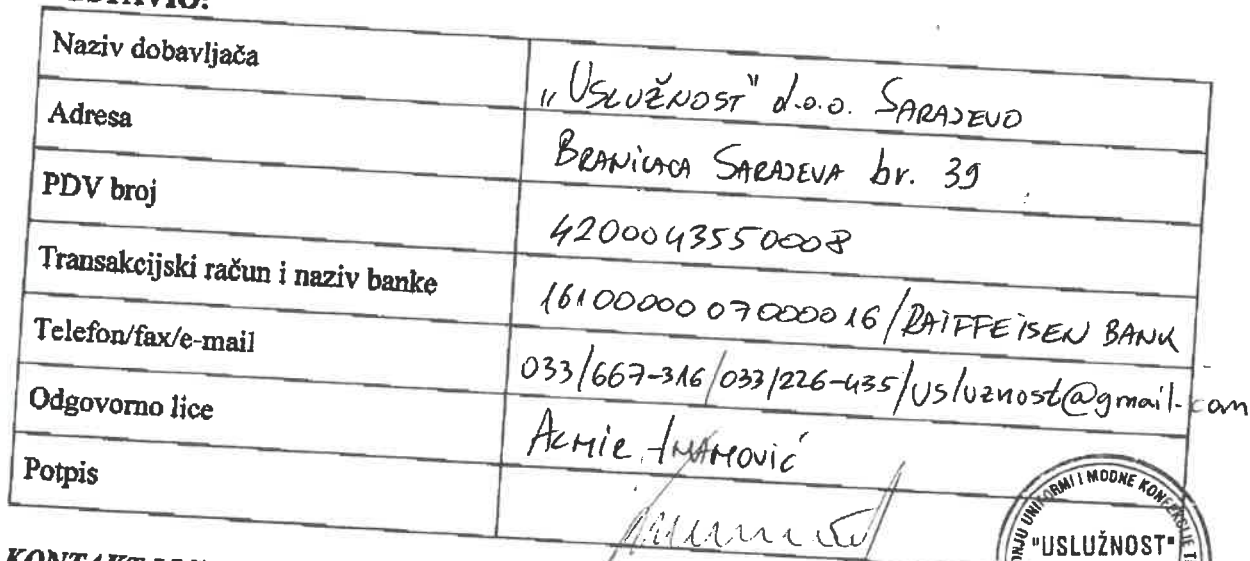 Naziv dobavljača
„Uslužnost" d.o.o. Sarajevo
Adresa
Branilaca Sarajeva br. 39
PDV broj
4200043550008
Transakcijski račun i naziv banke
1610000007000016/RAIFFEISEN BANK
Telefon/fax/e-mail
033/667-316/033/226-435/usluznost@gmail.com
Odgovorno lice
Imamović
Potpis
"USLUŽNOST"
UNIFORMI I MODNE
KONTAKT